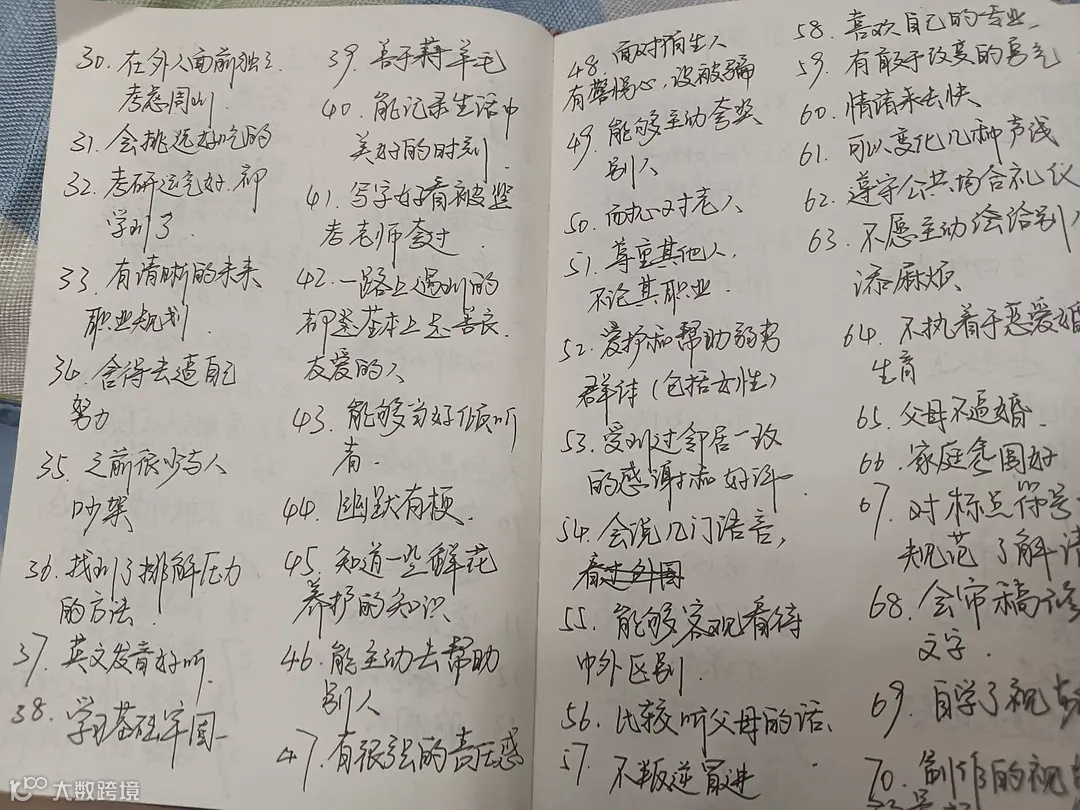 30. 在外人面前独立
考虑周到.
31. 会挑选好吃的
32. 考研运气好. 都
学到了
33. 有清晰的未来
职业规划.
34. 舍得去逼自己
努力
35. 之前很少与人
吵架
36. 找到了排解压力
的方法.
37. 英文发音好听.
38. 学习基础牢固
39. 善于薅羊毛
40. 能记录生活中
美好的时刻.
41. 写字好看被监
考老师夸过.
42. 一路上遇到的
都基本上是善良.
友爱的人
43. 能够当好倾听
者.
44. 幽默有梗.
45. 知道一些鲜花
养护的知识
46. 能主动去帮助
别人
47. 有很强的责任感
48. 面对陌生人
有警惕心, 没被骗
49. 能够主动夸奖
别人
50. 耐心对老人
51. 尊重其他人,
不论其职业.
52. 爱护和帮助弱势
群体 (包括女性)
53. 受到过邻居一致
的感谢和好评
54. 会说几门语言,
看过外国
55. 能够客观看待
中外区别.
56. 比较听父母的话.
57. 不叛逆冒进
58. 喜欢自己的专业
59. 有敢于改变的勇气
60. 情绪来去快
61. 可以变化几种声线
62. 遵守公共场合礼仪
63. 不愿主动给别人
添麻烦.
64. 不执着于恋爱婚
生育
65. 父母不逼婚.
66. 家庭氛围好
67. 对标点符号
规范了解清
68. 会审稿修
文字.
69. 自学了视
70. 制作的视
大数跨境